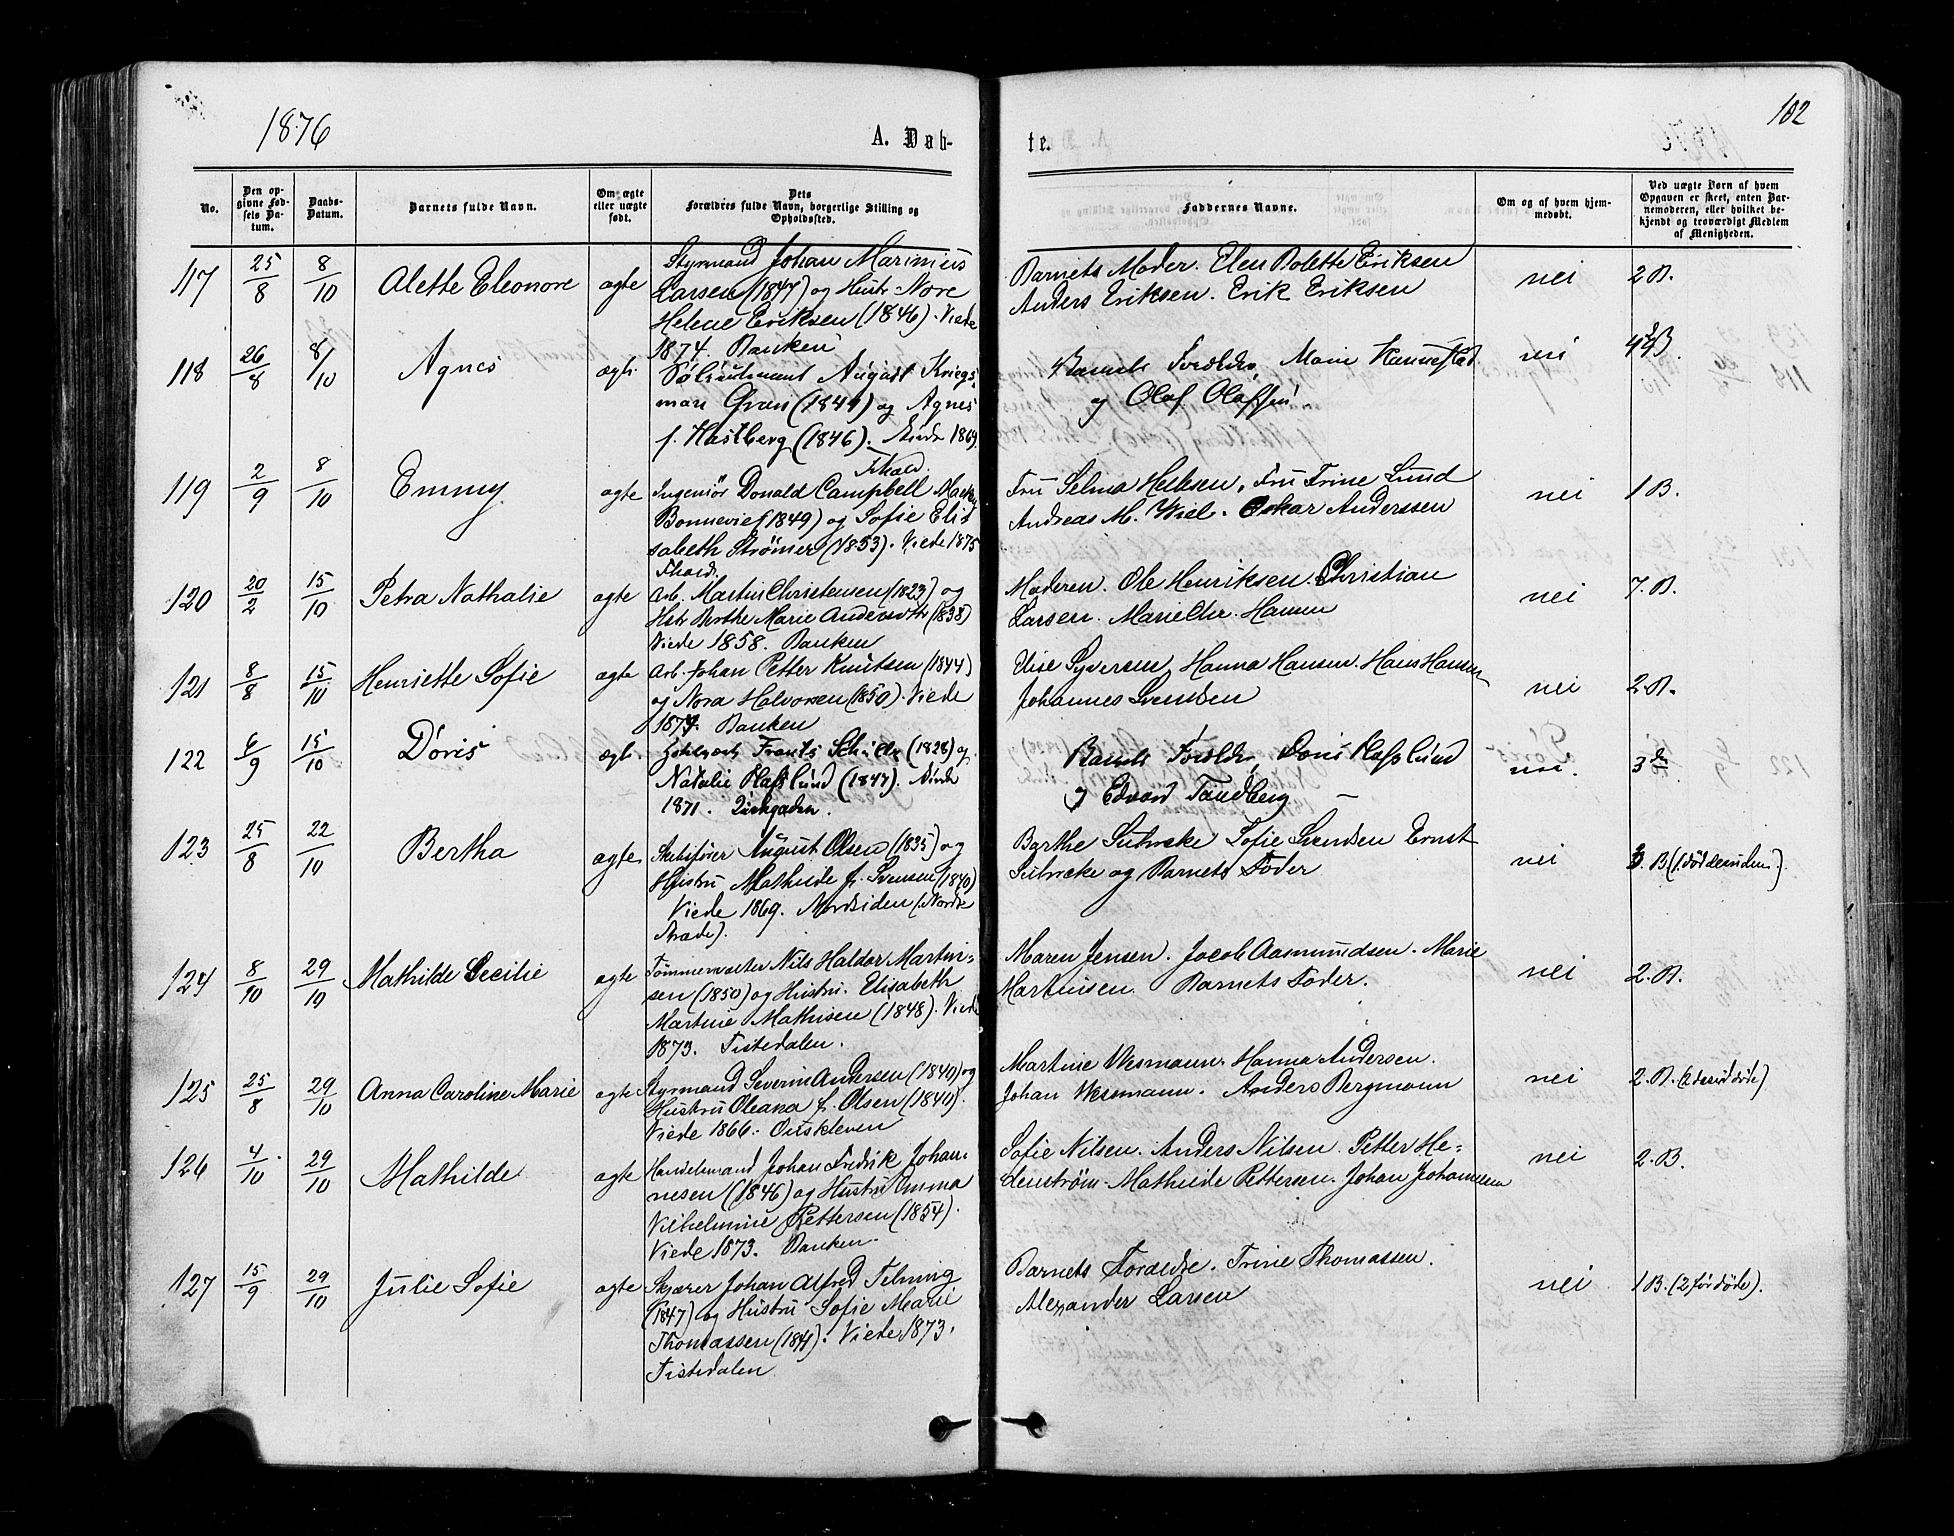 1876
A. Døb-
te.
102
No.
Den op-
givne Fød-
sels Da-
tum.
Daabs-
Datum.
Barnets fulde Navn.
Om ægte
eller uægte
født.
Dets
Forældres fulde Navn, borgerlige Stilling og
Opholdssted.
Faddernes Navne.
Om og af hvem hjem-
medøbt.
Ved uægte Børn af hvem
Opgaven er skeet, enten Bar-
nemoderen, eller hvilket be-
kjendt og troværdigt Medlem
af Menigheden.
117 25/8 8/10 Alette Eleonore ægte
Styrmand Johan Marinius
Larsen (1847) og Hustr. Nore
Helene Eriksen (1846). Viede
1874. Banken
Barnets Moder. Elen Bolette Eriksen
Anders Eriksen. Erik Eriksen
nei 2 B.
118 26/8 8/10 Agnes ægte
August Kriegs
man Gran (1844) og Agnes
f. Hastberg (1846). Viede 1869.
Fhald.
Barnets Forældre, Marie Hannestad
og Olaf Olafsen.
nei
119 2/9 8/10 Emmy ægte
Ingeniør Donald Campbell
Bonnevie (1849) og Sofie Elis
sabeth Strømer (1853). Viede 1875
Fhald.
Fru Selma Helksen, Fru Trine Lund
Andreas M. Wiel. Oskar Anderssen
nei 1 B.
120 20/2 15/10 Petra Nathalie ægte
Arb. Martin Christensen (1823) og
Hstr Berthe Marie Andersdtr (1838)
Viede 1858. Banken
Moderen. Ole Henriksen. Christian
Larsen. Marie Chr. Hansen
nei 7. B.
121 8/8 15/10 Henriette Sofie ægte
Arb. Johan Petter Knutsen (1844)
og Nora Halvorsen (1850). Viede
1874. Banken
Elise Syversen, Hanna Hansen. Hans Hansen
Johannes Svendsen
nei 2. B.
122 6/9 15/10 Doris ægt.
Frants (1828) og
Natalie Hafslund (1847). Viede
1871.
Barnets Forældre, Doris Hafslund
og Edvard Tandberg
nei. 3
123 25/8 22/10 Bertha ægte
Skibsfører August Olsen (1835) og
Hustru Mathilde f. Svensen (1840)
Viede 1869. Nordsiden (Nordre
Strade).
Berthe Lutvcke Sofie Svendsen Ernst
Lutvcke og Barnets Fader
nei 3. B (1
124 8/10 29/10 Mathilde Cecilie ægte
Nils Haldor Martin-
sen (1850) og Hustru. Elisabeth
Martine Mathisen (1848). Viede
1873. Tistedalen.
Maren Jensen. Jacob Aasmundsen. Marie
Martinsen. Barnets Fader.
nei 2. B.
125 25/8 29/10 Anna Caroline Marie ægte
Styrmand Severin Andersen (1840) og
Hustru Oleana f. Olsen (1840).
Viede 1866.
Martine Wesmann. Hanna Andersen.
Johan Wesmann. Anders Bergmann
nei 2. B.
126 4/10 29/10 Mathilde ægte
Handelsmand Johan Fredrik Johan-
nesen (1846) og Hustru Emma
Vilhelmine Pettersen (1854).
Viede 1873. Banken.
Sofie Nilsen. Anders Nilsen. Petter He-
denstrøm. Mathilde Pettersen. Johan Johannesen
nei 2. B.
127 15/9 29/10 Julie Sofie ægte
Skjærer Johan Alfred Felming
(1847) og Hustru Sofie Marie
Thomassen (1841). Viede 1873.
Tistedalen
Barnets Forældre. Trine Thomassen.
Alexander Larsen
nei 1 B. (2 før døde).